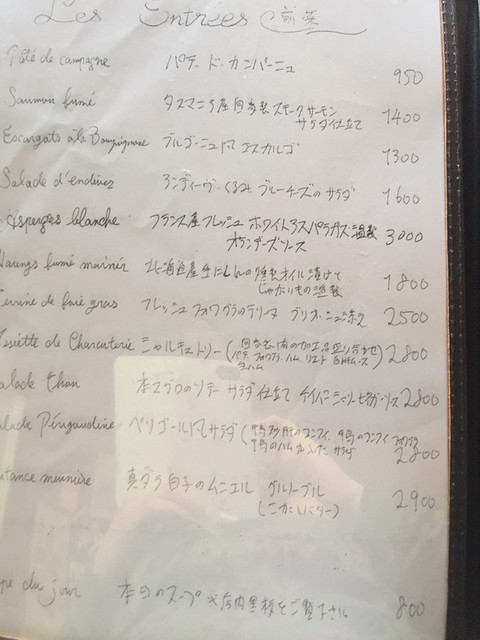 Les Entrees 前菜
Pâté de campagne パテ・ド・カンパーニュ 950
Saumon fumé タスマニア産自家製スモークサーモン
サラダ仕立て 1400
Escargots à la ブルゴーニュ風エスカルゴ 1300
Salade d'endives アンディーヴ・くるみ ブルーチーズのサラダ 1600
Asperges blanche フランス産フレッシュ ホワイトアスパラガス温製
オランデーズソース 3000
Harengs fumé mariner 北海道産生にしんの燻製オイル漬けて
じゃがいもの温製 1800
Terrine de foie gras フレッシュフォワグラのテリーヌ ブリオッシュ添え 2500
Assiette de Charcuterie シャルキュトリー(自家製肉の加工品盛り合わせ
パテ フォワグラ ハム リエット 白レバームース
生ハム) 2800
Salade thon 本マグロのソテー サラダ仕立て ケイパー シェリービネガーソース 2800
Salade Périgourdine ペリゴール風サラダ(鴨砂肝のコンフィ、鴨のコンフィ フォワグラ
鴨のハムが入ったサラダ 2800
meunière 真ダラ白子のムニエル ブールノワゼット
(こがしバター) 2900
du jour 本日のスープ ※店内黒板をご覧下さい 800